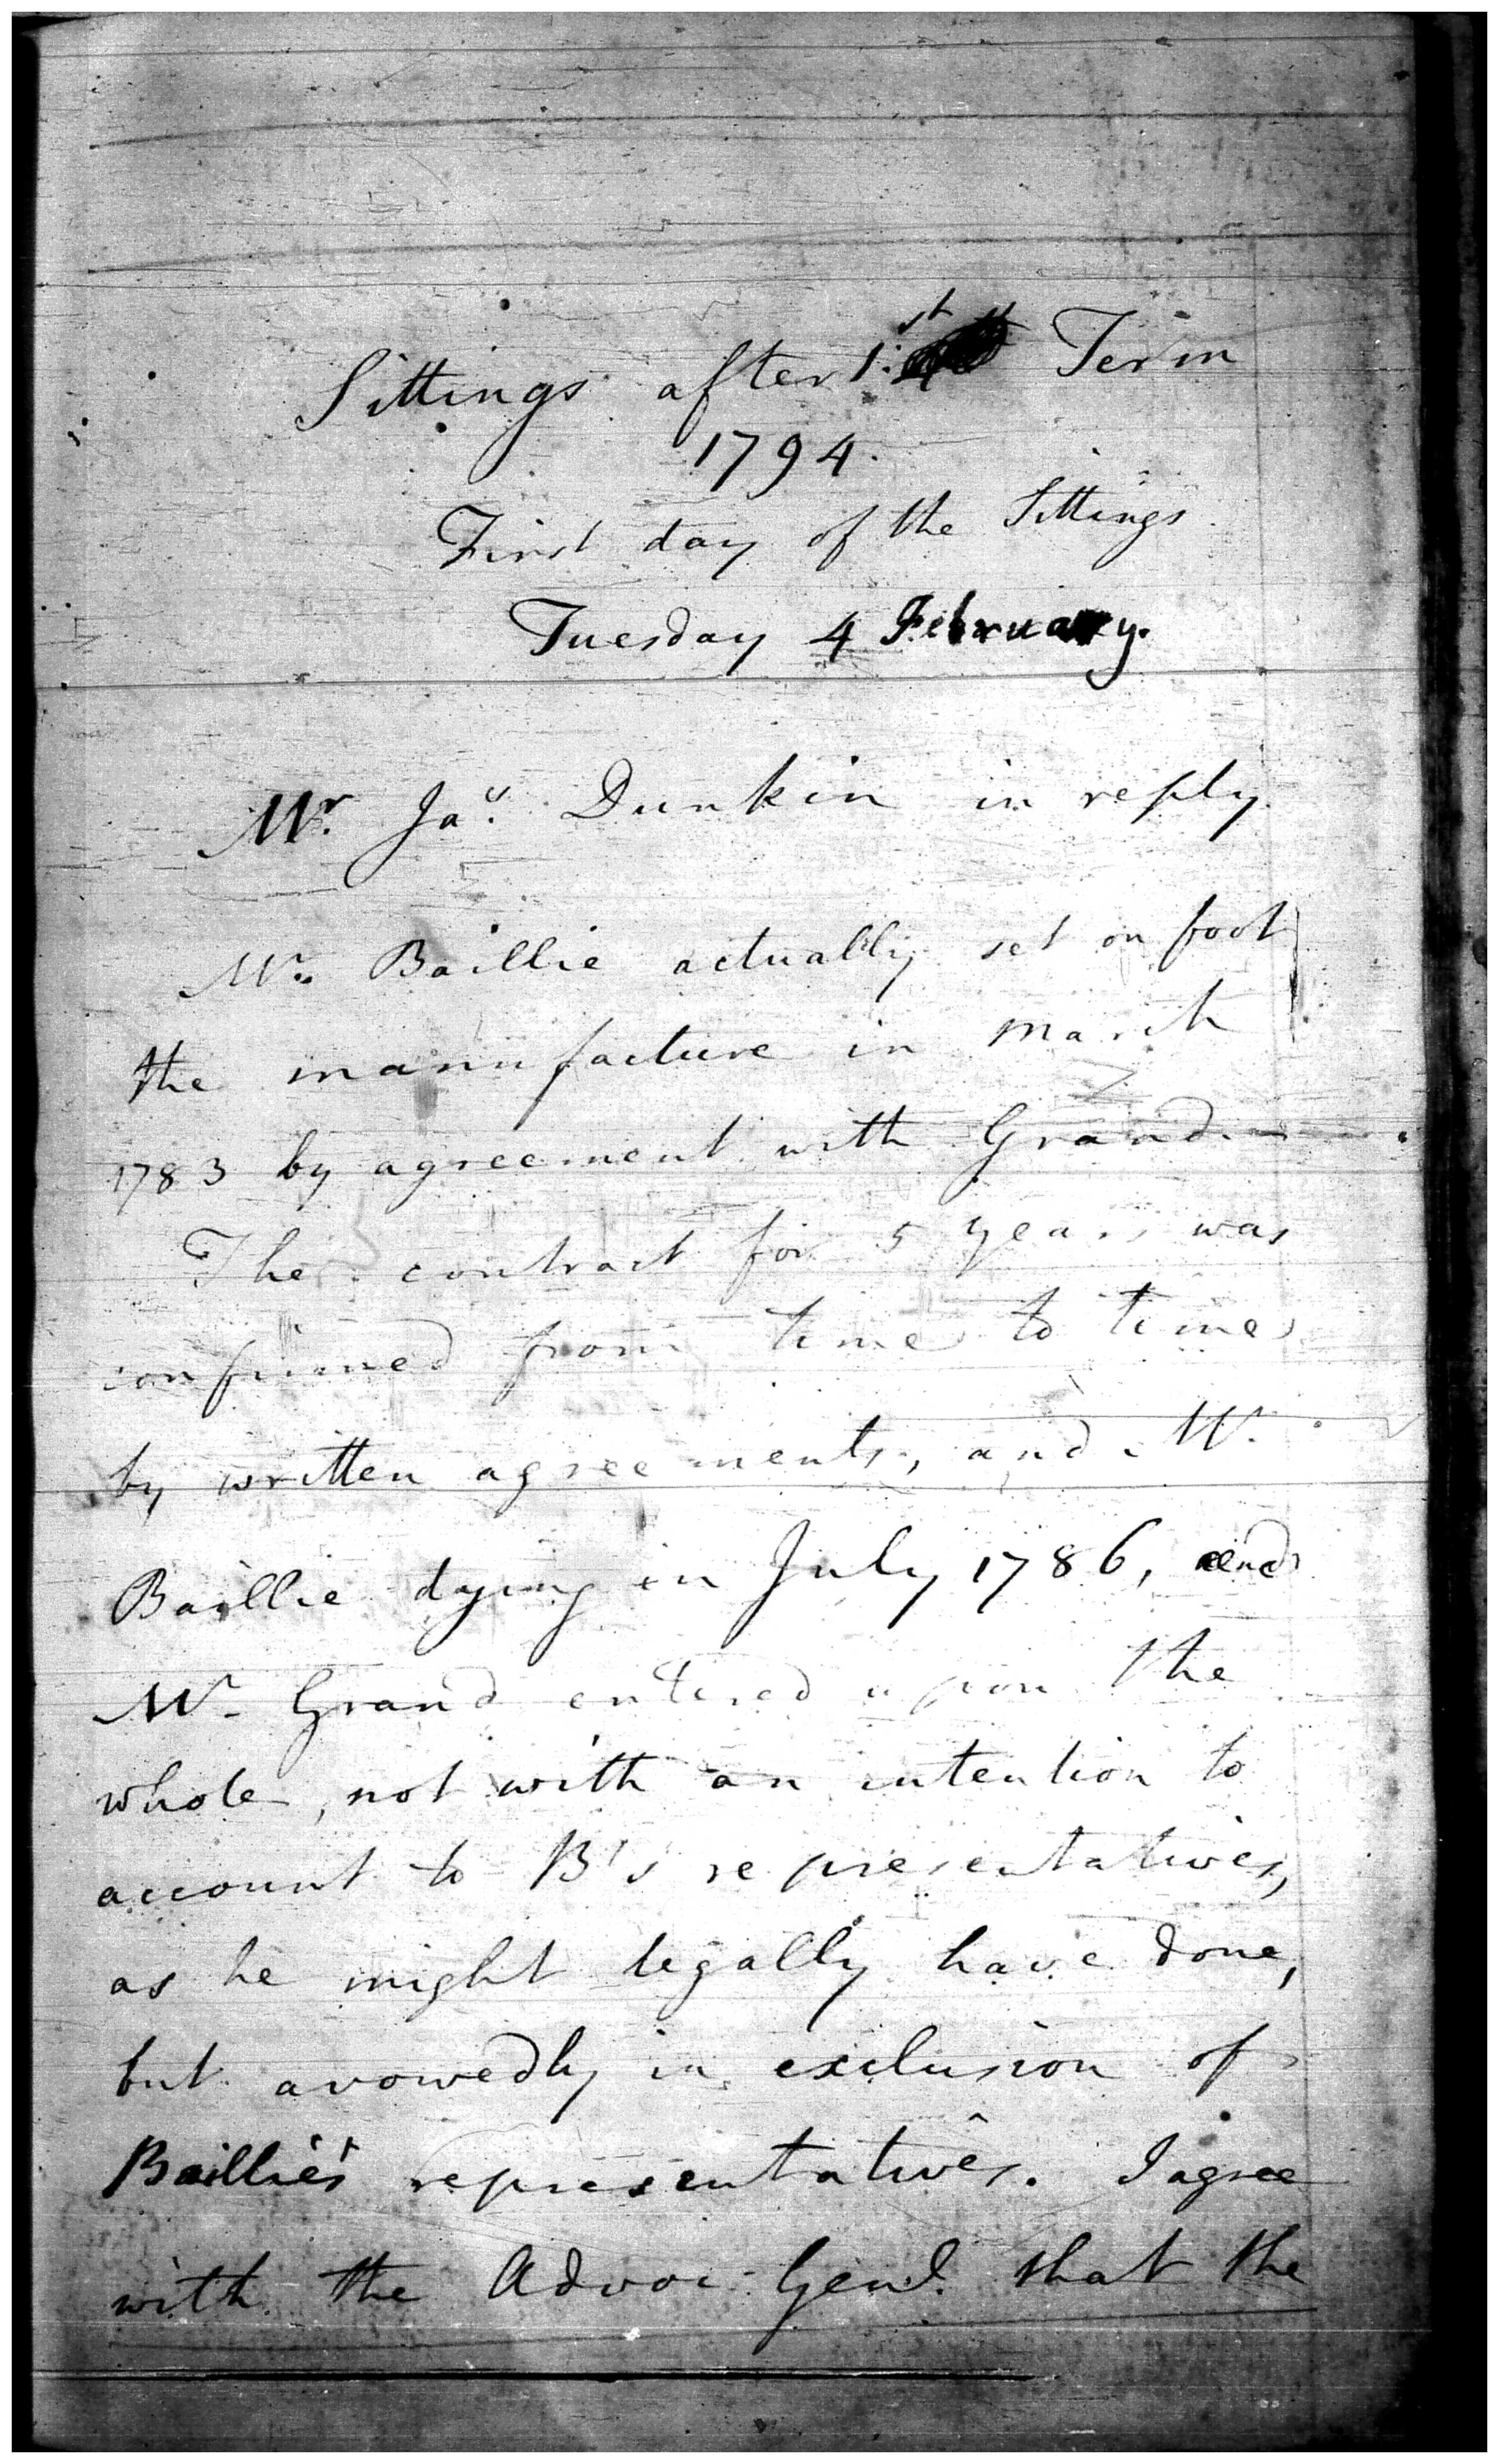 Sittings after 1st Term
1794.
First day of the Sittings
Tuesday 4 February.
Mr. Jas. Dunkin in reply.
Mr. Baillie actually set on foot
the manufacture in March
1783 by agreement with Grand.
The contract for 5 years was
confirmed from time to time
by written agreements, and Mr.
Baillie dying in July 1786, and
Mr. Grand entered upon the
whole, not with an intention to
account to B's representatives,
as he might legally have done,
but avowedly in exclusion of
Baillie's representatives. I agree
with the Advoc. Genl. that the